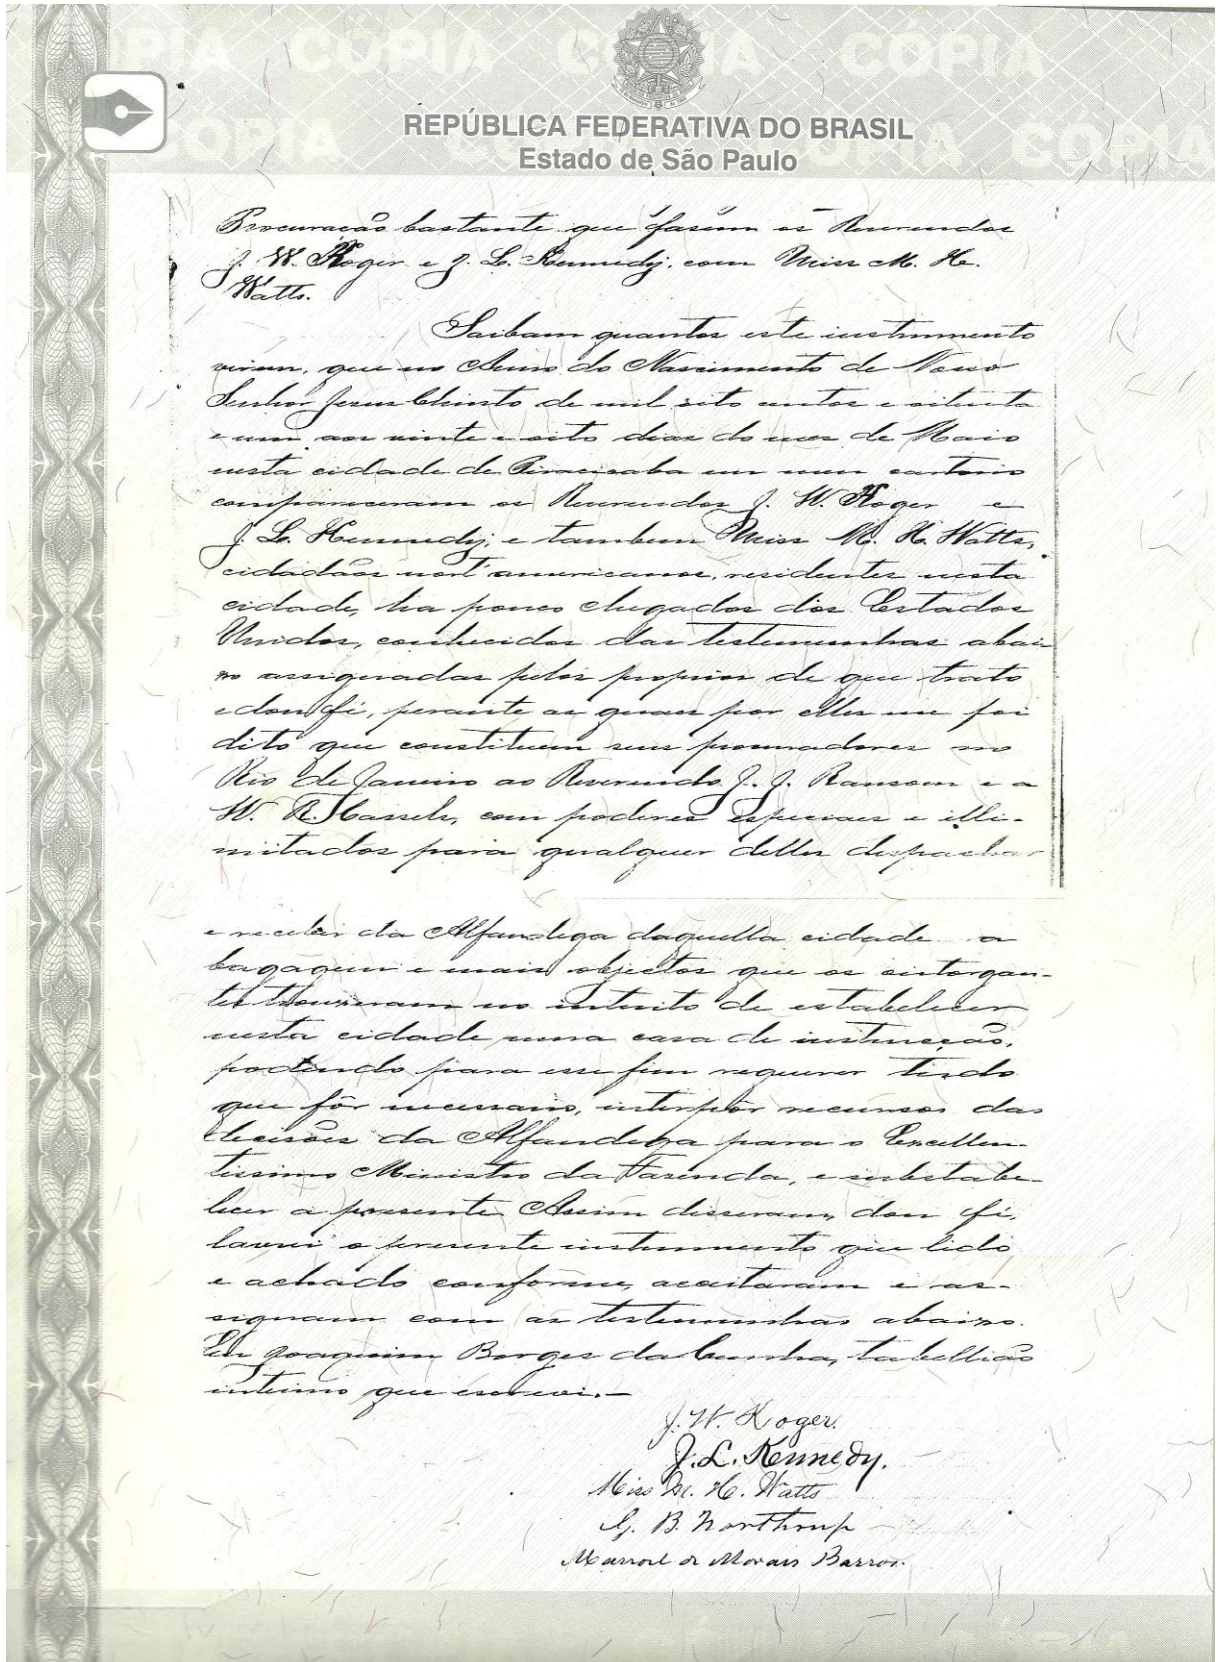 CÓPIA CÓPIA CÓPIA CÓPIA
REPÚBLICA FEDERATIVA DO BRASIL
Estado de São Paulo
Procuração bastante que fasem os Reverendos
J. W. Koger e J. L. Kennedy, com Miss M. H.
Watts.
Saibam quantos este instrumento
virem, que no Anno do Nascimento de Nosso
Senhor Jesus Christo de mil oito centos e oitenta
e um aos vinte e oito dias do mes de Maio
nesta cidade de Piracicaba em meu cartorio
compareceram os Reverendos J. W. Koger e
J. L. Kennedy; e tambem Miss M. H. Watts,
cidadãos nort'americanos, residentes nesta
cidade, ha pouco chegados dos Estados
Unidos, conhecidos das testemunhas abai
xo assignadas pelos proprios de que trato
e dou fé, perante as quaes por elles me foi
dito que constituem seus procuradores no
Rio de Janeiro ao Reverendo J. J. Ransom e a
W. R. Cassels, com poderes especiaes e illi-
mitados para qualquer delles despachar
e receber da Alfandega daquella cidade a
bagagem e mais objectos que os outorgan-
tes trouxeram no intuito de estabelecer
nesta cidade uma casa de instrucção,
podendo para esse fim requerer tudo
que fôr necessario, interpôr recursos das
decisões da Alfandega para o Excellen-
tissimo Ministro da Fasenda, e substabe-
lecer a presente. Assim disseram, dou fé,
lavrei o presente instrumento que lido
e achado conforme, aceitaram e as-
signam com as testemunhas abaixo.
Eu Joaquim Borges da Cunha, tabellião
interino que escrevi.—
J. W. Koger.
J. L. Kennedy.
Miss M. H. Watts
G. B. Northrup
Manoel de Moraes Barros.